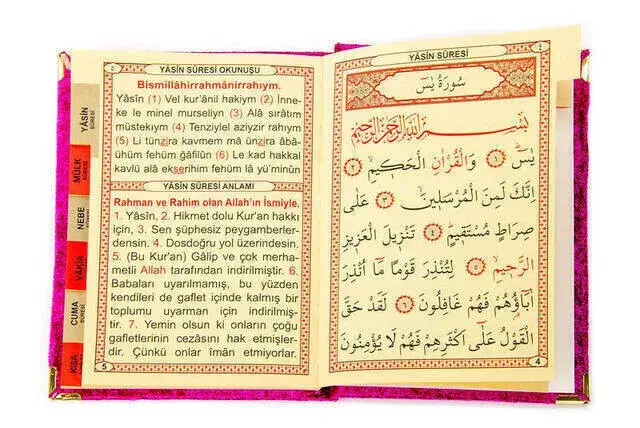 YÂSİN SÛRESİ
٤
سُورَةُ يٰسٓ
بِسْمِ اللّٰهِ الرَّحْمٰنِ الرَّحِيمِ
يٰسٓ ﴿١﴾ وَالْقُرْاٰنِ الْحَكِيمِ ﴿٢﴾
اِنَّكَ لَمِنَ الْمُرْسَلِينَ ﴿٣﴾ عَلٰى
صِرَاطٍ مُسْتَقِيمٍ ﴿٤﴾ تَنْزِيلَ الْعَزِيزِ
الرَّحِيمِ ﴿٥﴾ لِتُنْذِرَ قَوْمًا مَٓا اُنْذِرَ
اٰبَٓاؤُهُمْ فَهُمْ غَافِلُونَ ﴿٦﴾ لَقَدْ حَقَّ
الْقَوْلُ عَلٰٓى اَكْثَرِهِمْ فَهُمْ لَا يُؤْمِنُونَ
4
٥
YÂSİN SÛRESİ OKUNUŞU
Bismillâhirrahmânirrahıym.
Yâsîn (1) Vel kur'ânil hakiym (2) İnne-
ke le minel murseliyn (3) Alâ sırâtım
müstekıym (4) Tenziylel aziyzir rahiym
(5) Li tünzira kavmem mâ ünzira âbâ-
ühüm fehüm ğâfilûn (6) Le kad hakkal
kavlü alâ ekserihim fehüm lâ yü'minûn
YÂSİN SÛRESİ ANLAMI
Rahman ve Rahim olan Allah'ın İsmiyle.
1. Yâsîn, 2. Hikmet dolu Kur'an hakkı
için, 3. Sen şüphesiz peygamberler-
densin. 4. Dosdoğru yol üzerindesin.
5. (Bu Kur'an) Gâlip ve çok merha-
metli Allah tarafından indirilmiştir. 6.
Babaları uyarılmamış, bu yüzden
kendileri de gaflet içinde kalmış bir
toplumu uyarman için indirilmiş-
tir. 7. Yemin olsun ki onların çoğu
gafletlerinin cezâsını hak etmişler-
dir. Çünkü onlar îmân etmiyorlar.
5
YÂSİN
SÛRESİ
MÜLK
SÛRESİ
NEBE
SÛRESİ
VÂKIA
SÛRESİ
CUMA
SÛRESİ
KISA